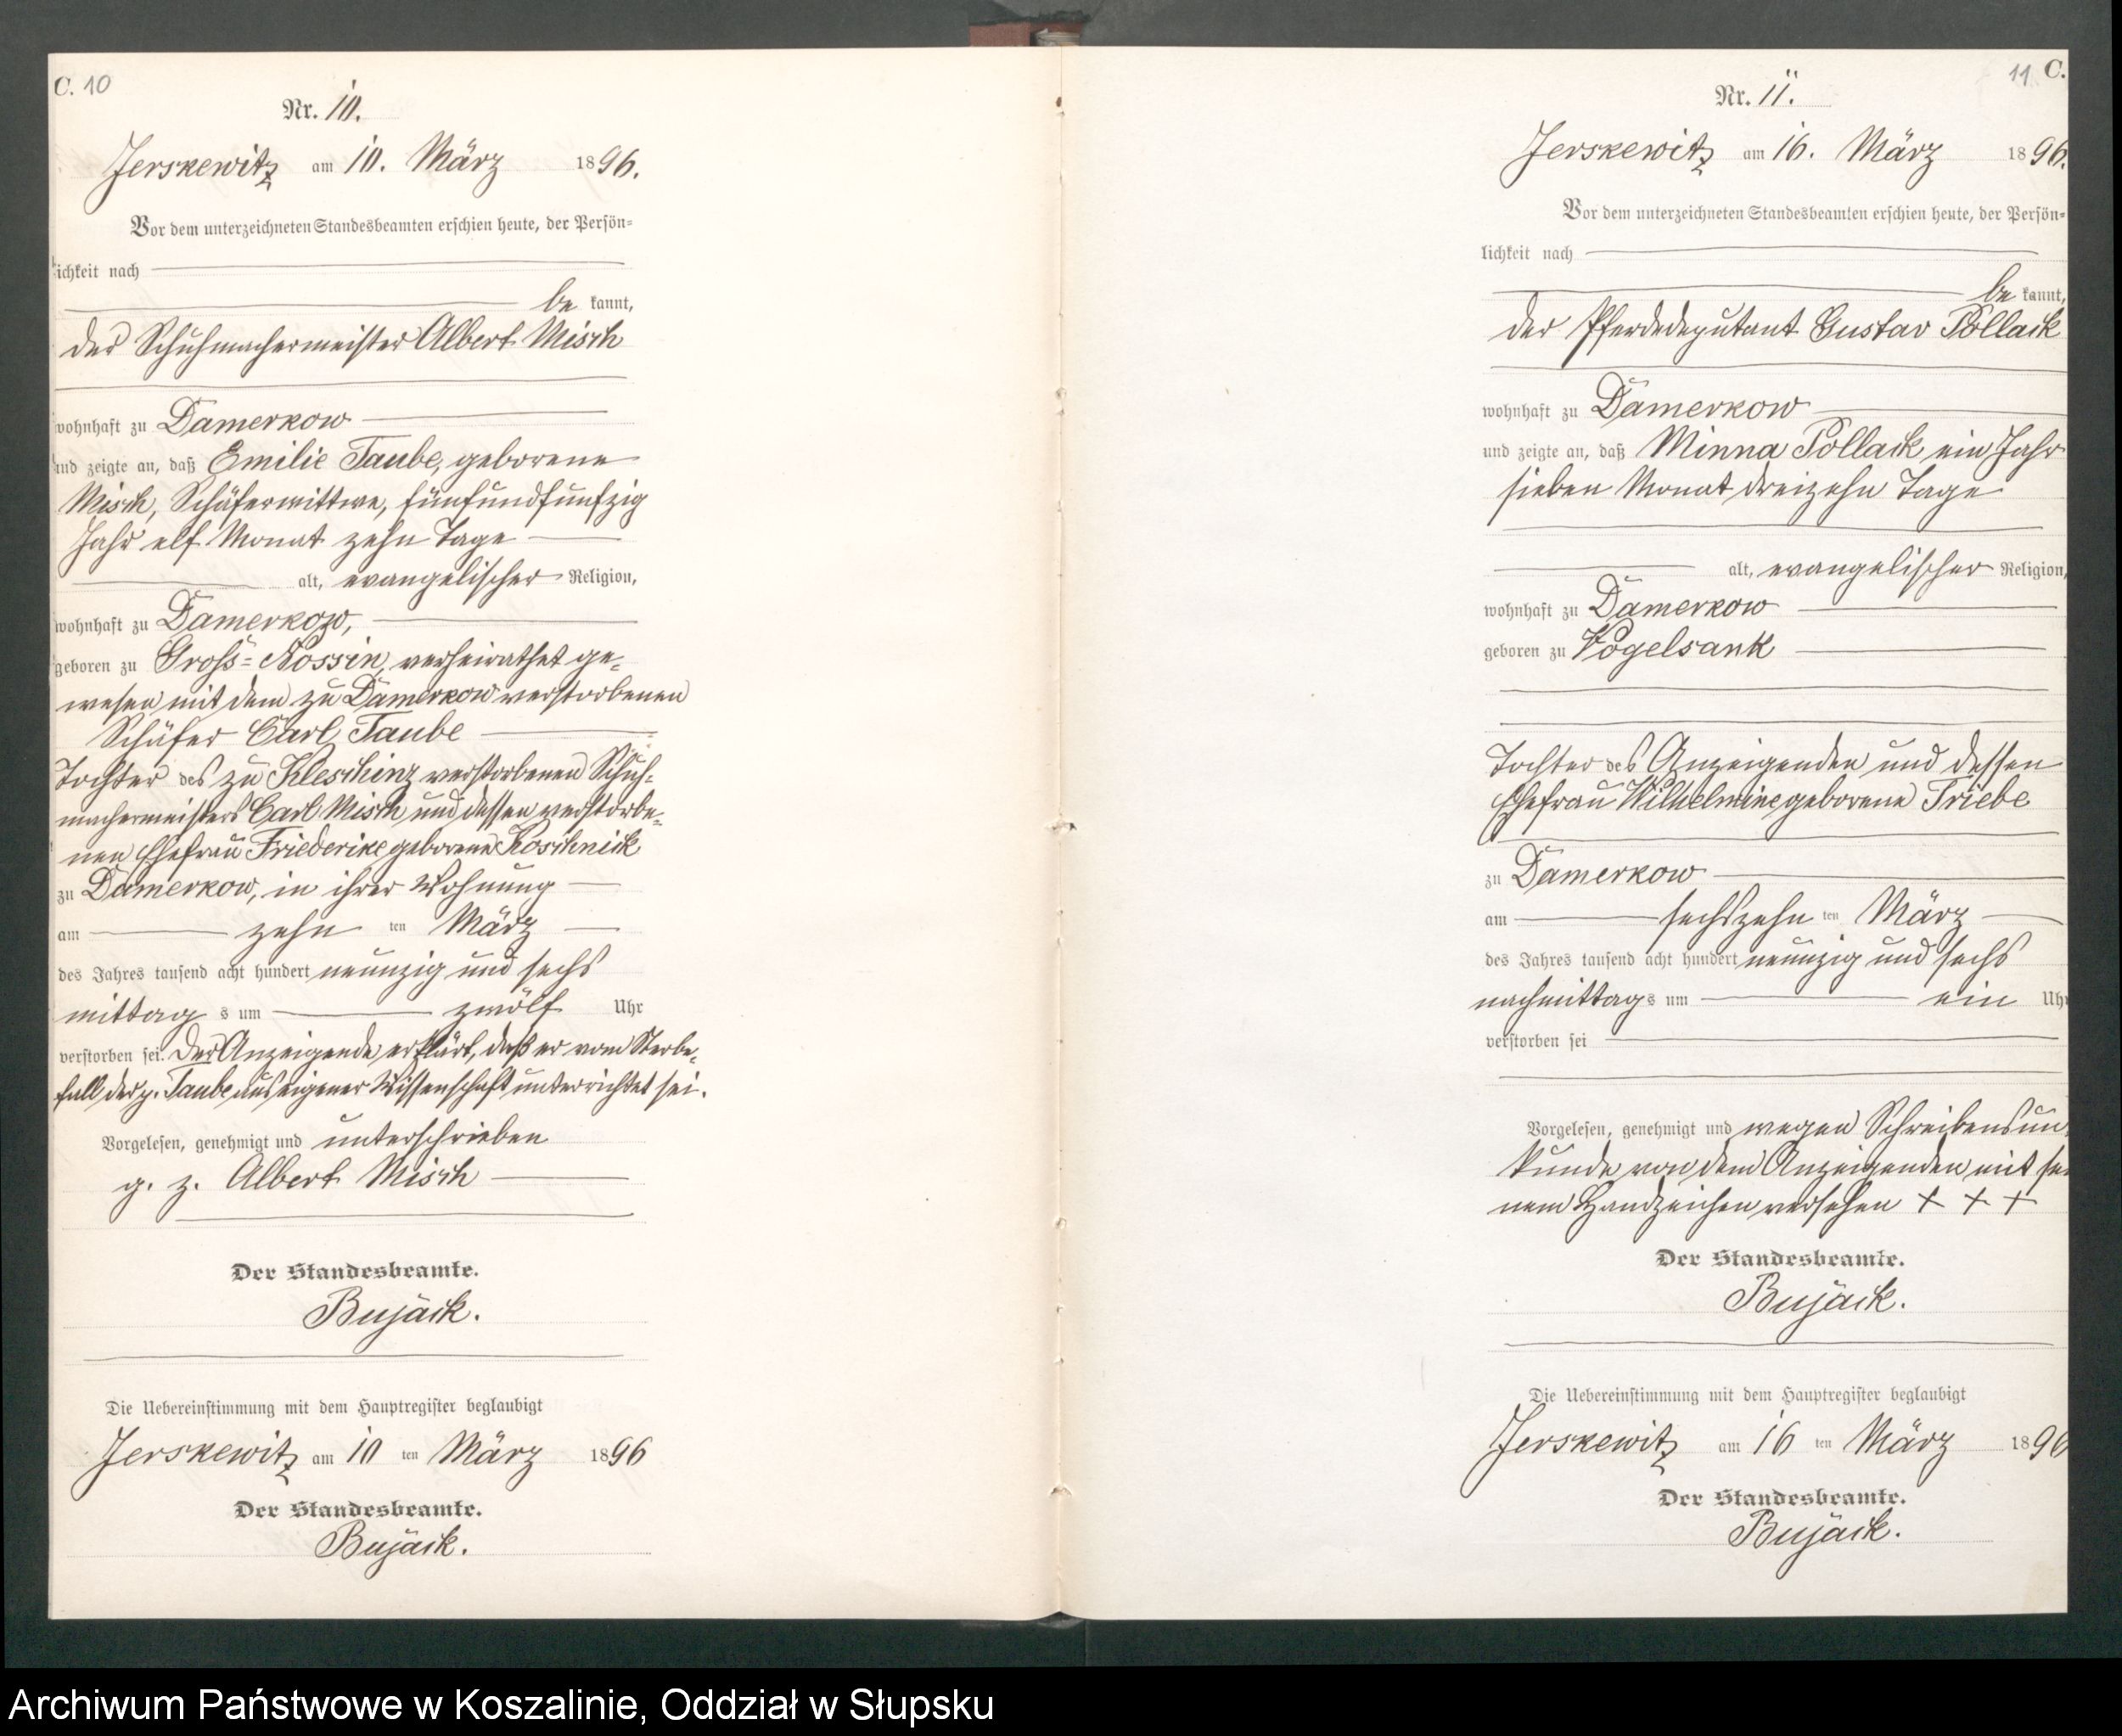 C. 10
Nr. 10.
Jerskewitz am 10. März 1896.
Vor dem unterzeichneten Standesbeamten erschien heute, der Persön=
lichkeit nach
be kannt,
der Schuhmachermeister Albert Misch
wohnhaft zu Damerkow
und zeigte an, daß Emilie Taube, geborene
Misch, Schäferwittwe, fünfundfünfzig
Jahr elf Monat zehn Tage
alt, evangelischer Religion,
wohnhaft zu Damerkow,
geboren zu Gross=Nossin, verheirathet ge-
wesen mit dem zu Damerkow verstorbenen
Schäfer Carl Taube
Tochter des zu Kleschinz verstorbenen Schuh-
machermeisters Carl Misch und dessen verstorbe-
nen Ehefrau Friederike geborene Koschnick
zu Damerkow, in ihrer Wohnung
am zehn ten März
des Jahres tausend acht hundert neunzig und sechs
mittag s um zwölf Uhr
verstorben sei. Der Anzeigende erklärt, daß er vom Sterbe-
fall der p. Taube aus eigener Wissenschaft unterrichtet sei.
Vorgelesen, genehmigt und unterschrieben
g. z. Albert Misch
Der Standesbeamte.
Bujack.
Die Uebereinstimmung mit dem Hauptregister beglaubigt
Jerskewitz am 10 ten März 1896
Der Standesbeamte.
Bujack.
11 C.
Nr. 11.
Jerskewitz am 16. März 1896.
Vor dem unterzeichneten Standesbeamten erschien heute, der Persön=
lichkeit nach
be kannt,
der Pferdedeputant Gustav Pollack
wohnhaft zu Damerkow
und zeigte an, daß Minna Pollack ein Jahr
sieben Monat dreizehn Tage
alt, evangelischer Religion,
wohnhaft zu Damerkow
geboren zu Vogelsank
Tochter des Anzeigenden und dessen
Ehefrau Wilhelmine geborene Triebe
zu Damerkow
am sechszehn ten März
des Jahres tausend acht hundert neunzig und sechs
nachmittag s um ein Uhr
verstorben sei
Vorgelesen, genehmigt und wegen Schreibensun-
kunde von dem Anzeigenden mit sei
nem Handzeichen versehen + + +
Der Standesbeamte.
Bujack.
Die Uebereinstimmung mit dem Hauptregister beglaubigt
Jerskewitz am 16 ten März 1896
Der Standesbeamte.
Bujack.
Archiwum Państwowe w Koszalinie, Oddział w Słupsku